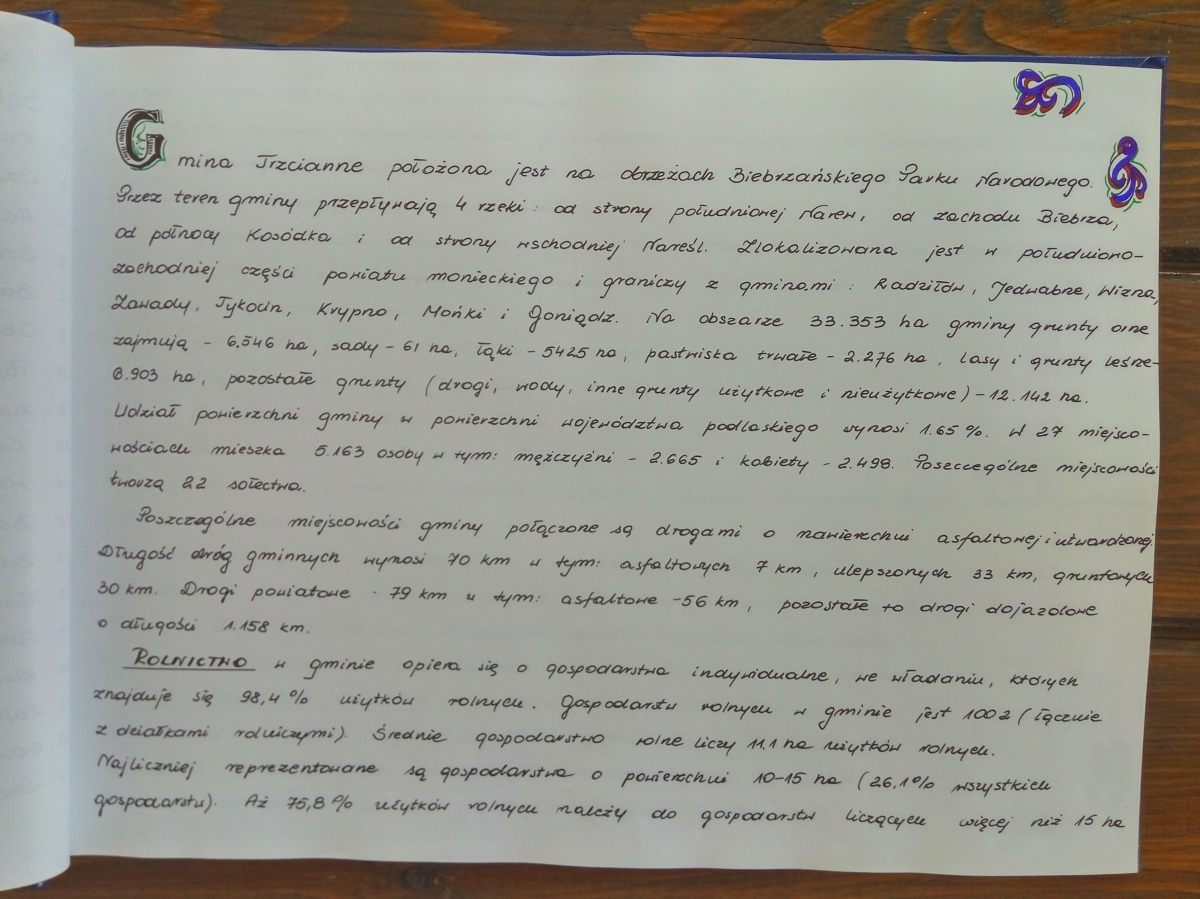 Gmina Trzcianne położona jest na obrzeżach Biebrzańskiego Parku Narodowego.
Przez teren gminy przepływają 4 rzeki: od strony południowej Narew, od zachodu Biebrza,
od północy Kosódka i od strony wschodniej Nareśl. Zlokalizowana jest w południowo-
zachodniej części powiatu monieckiego i graniczy z gminami: Radziłów, Jedwabne, Wizna,
Zawady, Tykocin, Krypno, Mońki i Goniądz. Na obszarze 33.353 ha gminy grunty orne
zajmują - 6.546 ha, sady - 61 ha, łąki - 5425 ha, pastwiska trwałe - 2.276 ha, lasy i grunty leśne-
6.903 ha, pozostałe grunty (drogi, wody, inne grunty użytkowe i nieużytkowe) - 12.142 ha.
Udział powierzchni gminy w powierzchni województwa podlaskiego wynosi 1.65 %. W 27 miejsco-
wościach mieszka 5.163 osoby w tym: mężczyźni - 2.665 i kobiety - 2.498. Poszczególne miejscowości
tworzą 22 sołectwa.
Poszczególne miejscowości gminy połączone są drogami o nawierzchni asfaltowej i utwardzonej.
Długość dróg gminnych wynosi 70 km w tym: asfaltowych 7 km, ulepszonych 33 km, gruntowych
30 km. Drogi powiatowe - 79 km w tym: asfaltowe - 56 km, pozostałe to drogi dojazdowe
o długości 1.158 km.
ROLNICTWO w gminie opiera się o gospodarstwa indywidualne, we władaniu, których
znajduje się 98,4 % użytków rolnych. Gospodarstw rolnych w gminie jest 1002 (łącznie
z działkami rolniczymi). Średnie gospodarstwo rolne liczy 11,1 ha użytków rolnych.
Najliczniej reprezentowane są gospodarstwa o powierzchni 10-15 ha (26,1% wszystkich
gospodarstw). Aż 75,8 % użytków rolnych należy do gospodarstw liczących więcej niż 15 ha